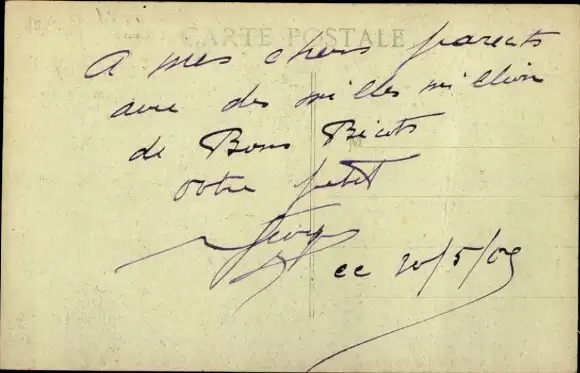 CARTE POSTALE
A mes chers parents
avec des milles million
de Bons Bécots
votre petit
Georges
ce 20/5/09